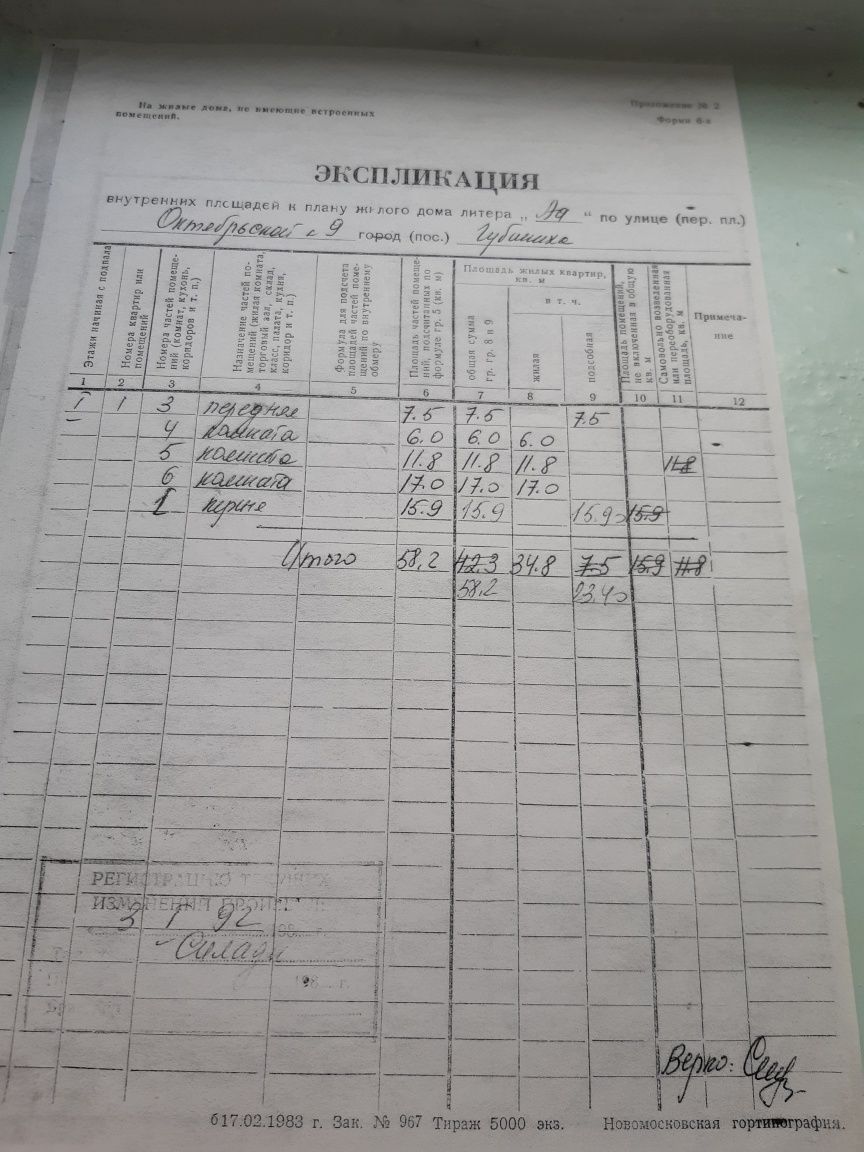 На жилые дома, не имеющие встроенных
помещений.
Приложение № 2
Форма 6-а
ЭКСПЛИКАЦИЯ
внутренних площадей к плану жилого дома литера „ “ по улице (пер. пл.)
Октябрьской 9 город (пос.) Губиниха
Этажи начиная с подвала
Номера квартир или помещений
Номера частей помещений (комнат, кухонь, коридоров и т. п.)
Назначение частей помещений (жилая комната, торговый зал, склад, класс, палата, кухня, коридор и т. п.)
Формула для подсчета площадей частей помещений по внутреннему обмеру
Площадь частей помещений, подсчитанных по формуле гр. 5 (кв. м)
Площадь жилых квартир, кв. м
общая сумма гр. гр. 8 и 9
в т. ч.
жилая
подсобная
Площадь помещений, не включенная в общую кв. м
Самовольно возведенная или переоборудованная площадь, кв. м
Примеча-
ние
1 2 3 4 5 6 7 8 9 10 11 12
1 1 3 передняя 7.5 7.5 7.5
4 комната 6.0 6.0 6.0
5 комната 11.8 11.8 11.8 11.8
6 комната 17.0 17.0 17.0
1 15.9 15.9 15.9 15.9
Итого 58,2 42.3 34.8 7.5 15.9 11.8
58,2 23.4
РЕГИСТРАЦИЮ ТЕКУЩИХ
ИЗМЕНЕНИЙ
3 1 92
198 г.
Верно:
617.02.1983 г. Зак. № 967 Тираж 5000 экз. Новомосковская гортипография.